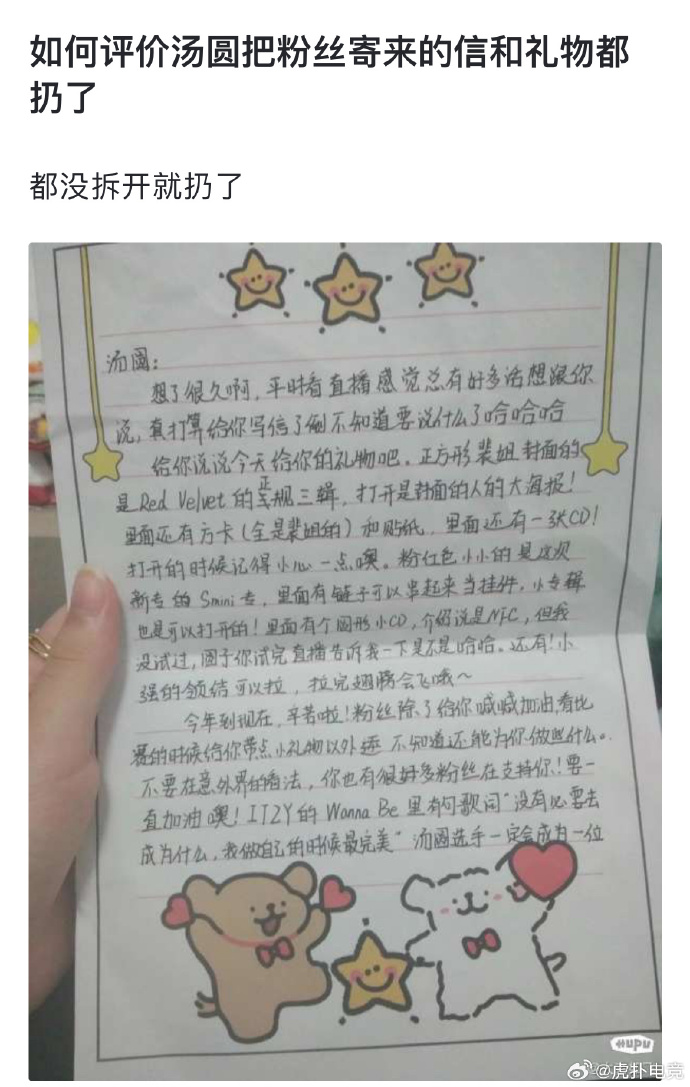 如何评价汤圆把粉丝寄来的信和礼物都
扔了
都没拆开就扔了
汤圆：
想了很久啊，平时看直播感觉总有好多话想跟你
说，真打算给你写信了倒不知道要说什么了哈哈哈
给你说说今天给你的礼物吧。正方形裴姐封面的
是Red Velvet的正规三辑，打开是封面的人的大海报！
里面还有方卡（全是裴姐的）和贴纸，里面还有一张CD！
打开的时候记得小心一点噢。粉红色小小的是这次
新专的Smini专，里面有链子可以串起来当挂件，小专辑
也是可以打开的！里面有个圆形小CD，介绍说是NFC，但我
没试过，圆子你试完直播告诉我一下是不是哈哈。还有！小
强的领结可以拉，拉完翅膀会飞哦～
今年到现在，辛苦啦！粉丝除了给你喊喊加油，看比
赛的时候给你带点小礼物以外 不知道还能为你做些什么。
不要在意外界的看法，你也有很好多粉丝在支持你！要一
直加油噢！ITZY的Wanna Be里有句歌词“没有必要去
成为什么，我做自己的时候最完美”汤圆选手一定会成为一位
HUPU
@虎扑电竞